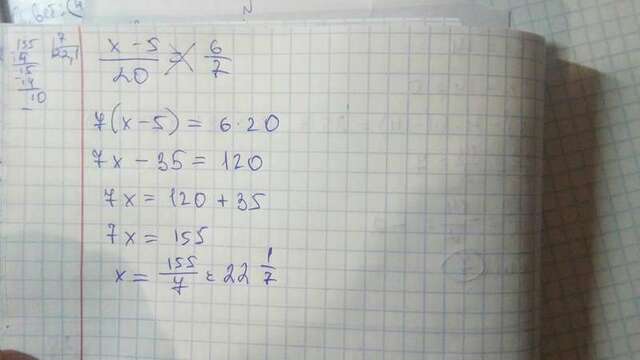 155 | 7
14 | 22,1
15
14
10
(x - 5)/20 = 6/7
7(x - 5) = 6 · 20
7x - 35 = 120
7x = 120 + 35
7x = 155
x = 155/7 = 22 1/7